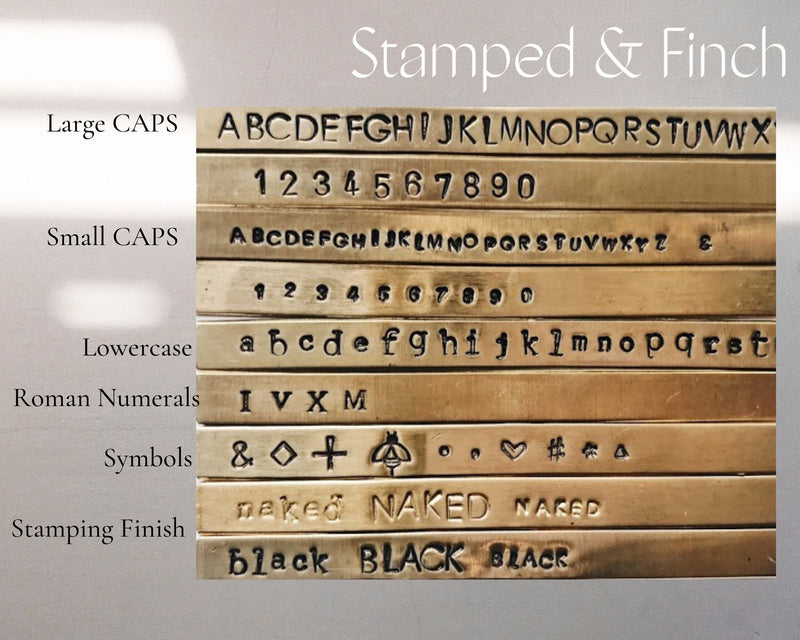 Stamped & Finch
Large CAPS
ABCDEFGHIJKLMNOPQRSTUVWX
1234567890
Small CAPS
ABCDEFGHIJKLMNOPQRSTUVWXYZ &
1234567890
Lowercase
abcdefghijklmnopqrst
Roman Numerals
I V X M
Symbols
& ◇ + • , ♡ # * △
Stamping Finish
naked NAKED NAKED
black BLACK BLACK